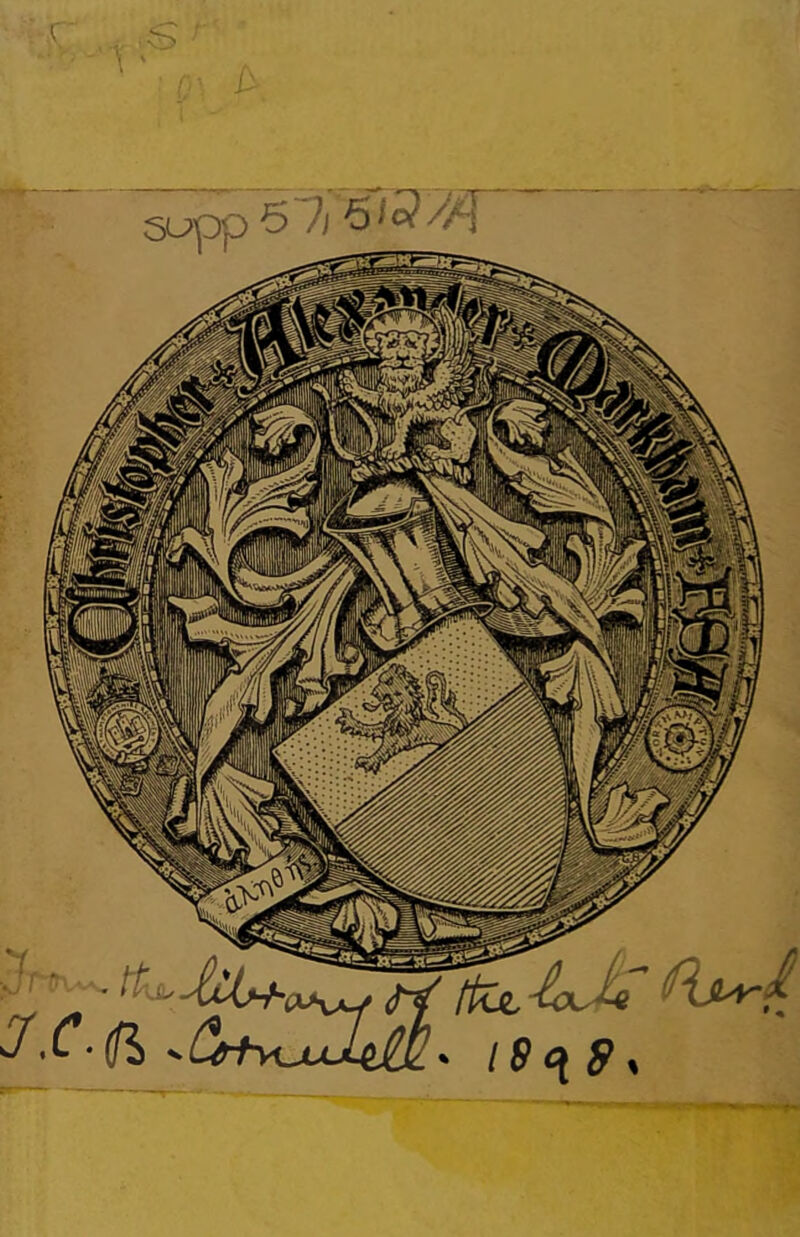 supp 57,512/A
Christopher * Alexander * Markham * FSA
NORTHAMPTON
ἀληθής
From the library of the late Revd
J.C.B. Cornwell. 1898.